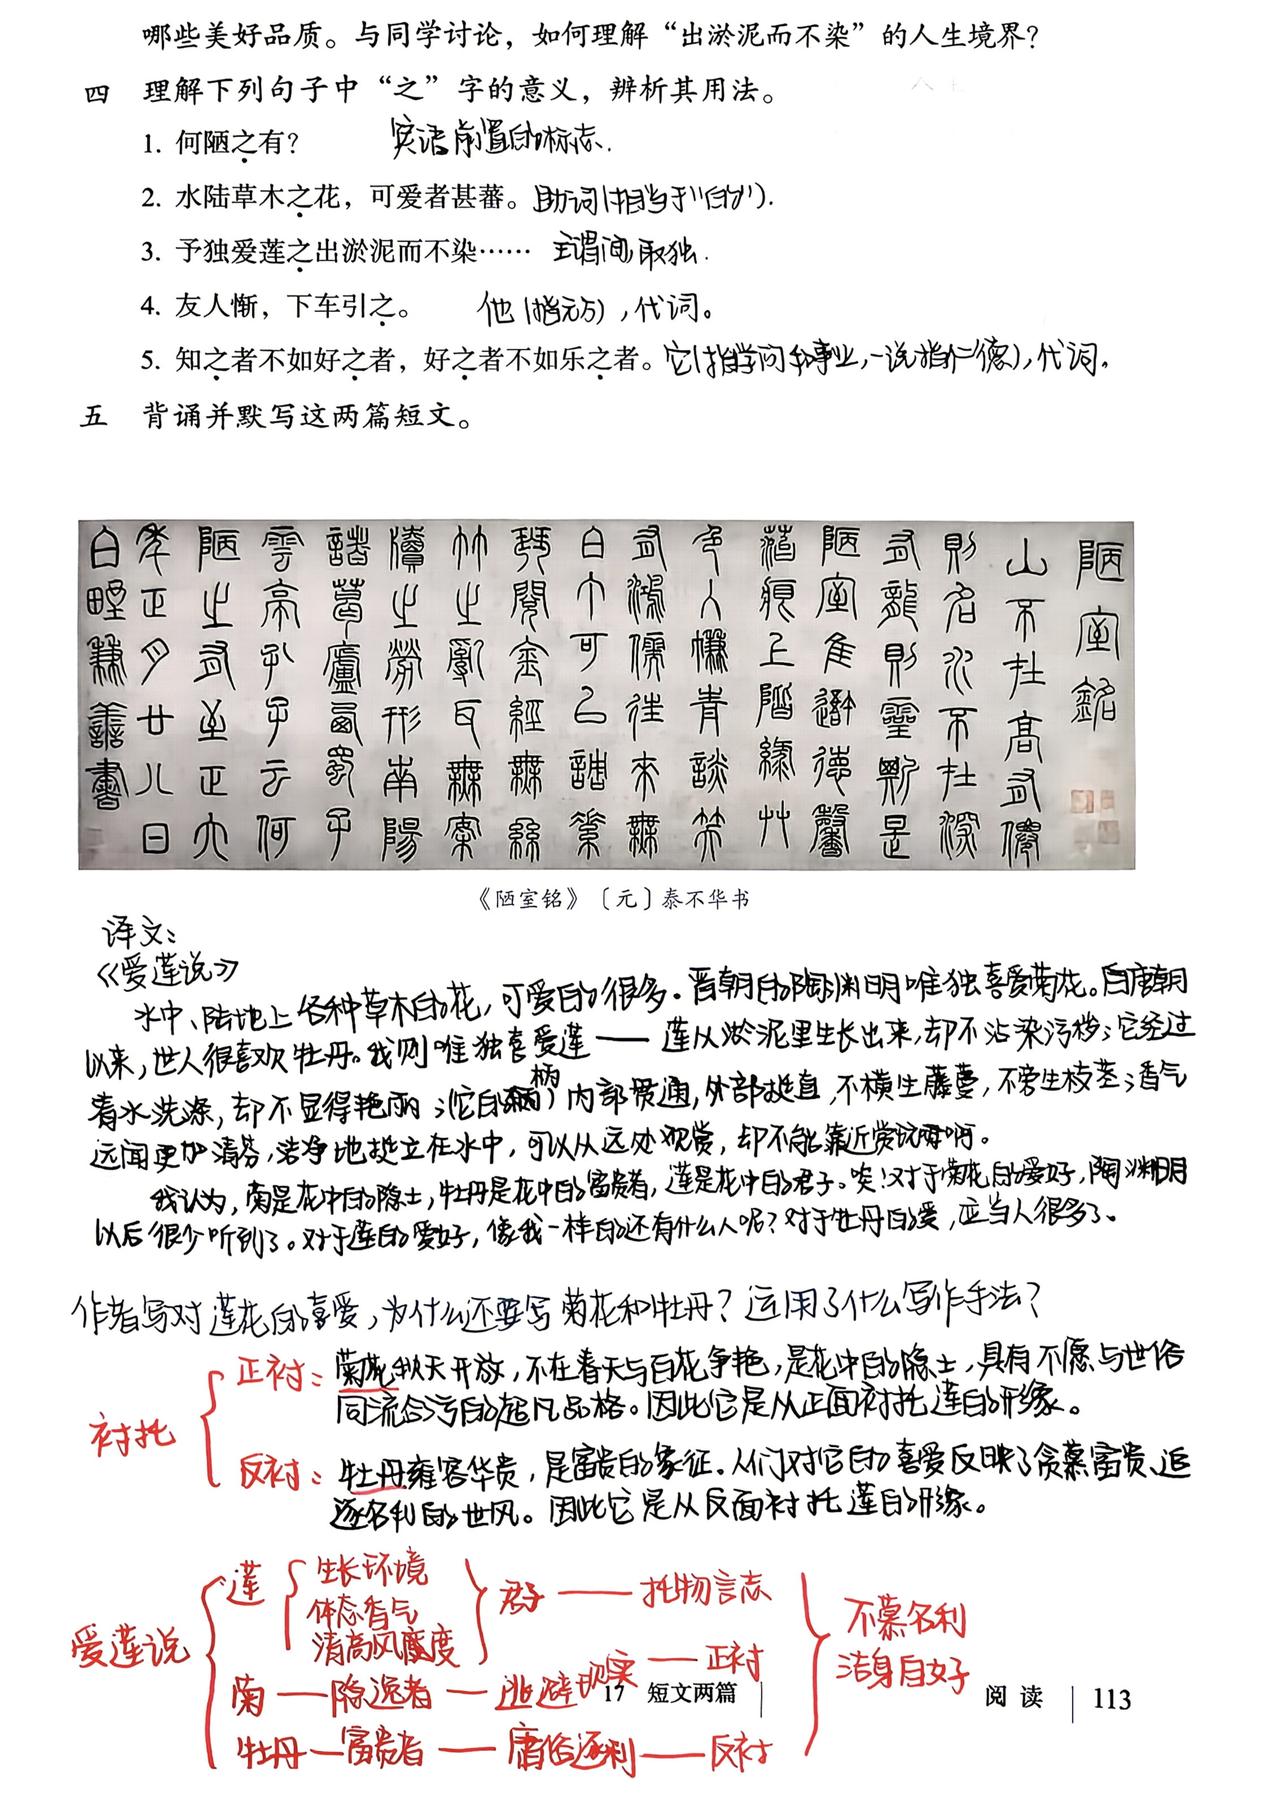 哪些美好品质。与同学讨论，如何理解“出淤泥而不染”的人生境界？
四 理解下列句子中“之”字的意义，辨析其用法。
1. 何陋之有？ 宾语前置的标志.
2. 水陆草木之花，可爱者甚蕃。助词(相当于“的”).
3. 予独爱莲之出淤泥而不染…… 主谓间取独.
4. 友人惭，下车引之。 他(指元方)，代词。
5. 知之者不如好之者，好之者不如乐之者。它(指学问和事业,一说指仁德)，代词.
五 背诵并默写这两篇短文。
陋室銘
山不在高有僊
則名水不在深
有龍則靈斯是
陋室惟吾德馨
苔痕上階綠艸
色入簾青談笑
有鴻儒往來無
白丁可以調素
琴閱金經無絲
竹之亂耳無案
牘之勞形南陽
諸葛廬西蜀子
雲亭孔子云何
陋之有至正六
年正月廿八日
白野兼善書
《陋室铭》〔元〕泰不华书
译文：
《爱莲说》
水中、陆地上各种草木的花，可爱的很多。晋朝的陶渊明唯独喜爱菊花。自唐朝
以来，世人很喜欢牡丹。我则唯独喜爱莲——莲从淤泥里生长出来，却不沾染污秽；它经过
清水洗涤，却不显得艳丽；(它的柄)内部贯通，外部挺直，不横生藤蔓，不旁生枝茎；香气
远闻更加清芬，洁净地挺立在水中，可以从远处观赏，却不能靠近赏玩啊。
我认为，菊是花中的隐士，牡丹是花中的富贵者，莲是花中的君子。唉！对于菊花的爱好，陶渊明
以后很少听到了。对于莲的爱好，像我一样的还有什么人呢？对于牡丹的爱，应当人很多了。
作者写对莲花的喜爱，为什么还要写菊花和牡丹？运用了什么写作手法？
衬托
正衬：菊花秋天开放，不在春天与百花争艳，是花中的隐士，具有不愿与世俗
同流合污的超凡品格。因此它是从正面衬托莲的形象。
反衬：牡丹雍容华贵，是富贵的象征。人们对它的喜爱反映了贪慕富贵、追
逐名利的世风。因此它是从反面衬托莲的形象。
爱莲说
莲 生长环境
体态香气
清高风度
君子——托物言志
菊——隐逸者——逃避现实——正衬
牡丹—富贵者——庸俗逐利——反衬
不慕名利
洁身自好
17 短文两篇
阅读 113